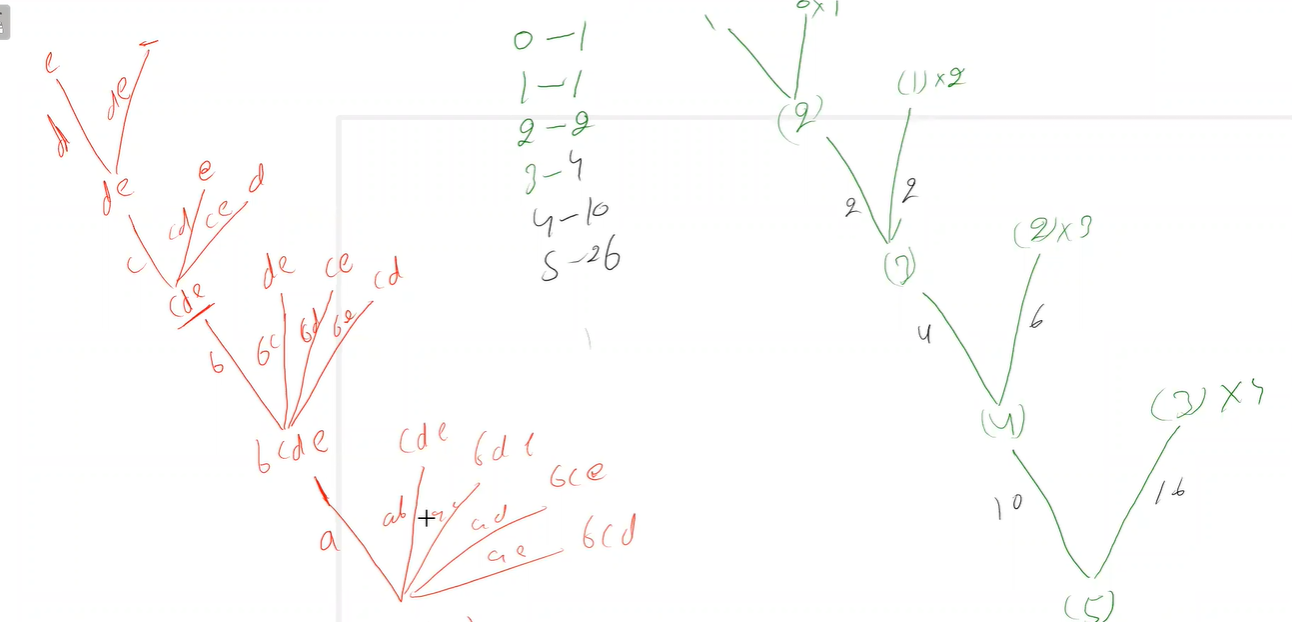 e
d
de
de
c
cd
e
ce
d
cde
b
de
ce
cd
bc
bd
be
bcde
a
cde
bde
bce
bcd
ab
ad
ae
0 - 1
1 - 1
2 - 2
3 - 4
4 - 10
5 - 26
(2)
(1) x 2
2
2
(3)
(2) x 3
4
6
(4)
(3) x 4
10
16
(5)